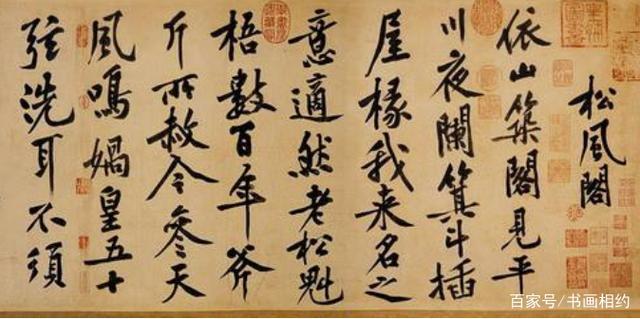 松風閣
依山築閣見平
川夜闌箕斗插
屋椽我来名之
意適然老松魁
梧數百年斧
斤所赦今參天
風鳴媧皇五十
弦洗耳不須
百家号/书画相约